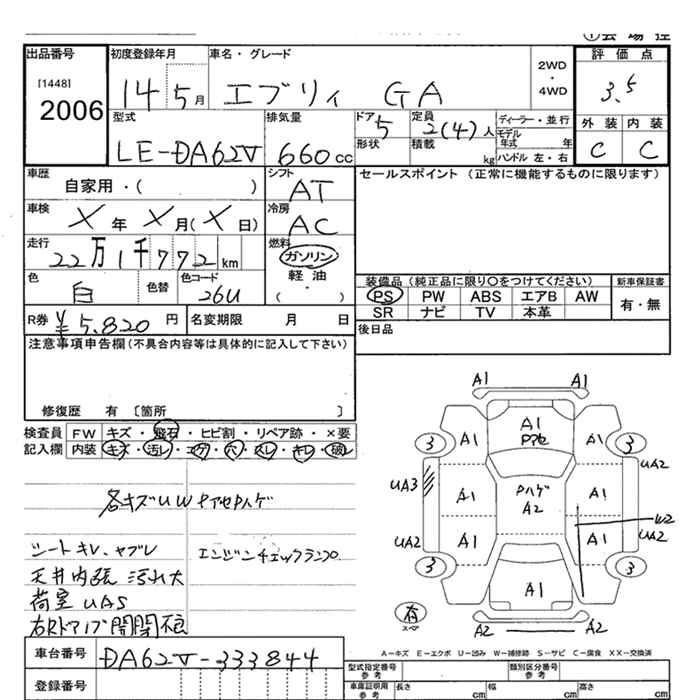 ①会場控
出品番号 初度登録年月 車名・グレード 評価点
[1448]
2006 14 5月 エブリィ GA 2WD・4WD 3.5
型式 排気量 ドア 5 定員 2(4)人 ディーラー・並行 外装 内装
LE-DA62V 660cc 形状 積載 kg モデル年式 年 C C
ハンドル 左・右
車歴 自家用・( ) シフト AT セールスポイント (正常に機能するものに限ります)
車検 X年 X月(X日) 冷房 AC
走行 22万1千772km 燃料 ガソリン
軽油
( ・ )
色 白 色替 色コード 26U 装備品 (純正品に限り○をつけてください) 新車保証書
PS PW ABS エアB AW 有・無
SR ナビ TV 本革
R券 ¥5,820円 名変期限 月 日 後日品
注意事項申告欄(不具合内容等は具体的に記入して下さい)
修復歴 有 〔箇所 〕
検査員 FW キズ・飛石・ヒビ割・リペア跡・×要
記入欄 内装 キズ・汚レ・コゲ・穴・スレ・キレ・破レ
各キズUWヤアセPハゲ
シートキレ、ヤブレ エンジンチェックランプ
天井内張 汚れ大
荷室UAS
A1 A1
A1
Pアセ
3 A1 A1 3
UA3 A1 Pハゲ A2 A1 UA2
UA2 A1 A1 W2
UA2
3 A1 3
有
スペア
A2 A2
A-キズ E-エクボ U-凹み W-補修跡 S-サビ C-腐食 XX-交換済
車台番号 DA62V-333844
型式指定番号 参考 類別区分番号 参考
登録番号 車庫証明用 参考 長さ cm 幅 cm 高さ cm